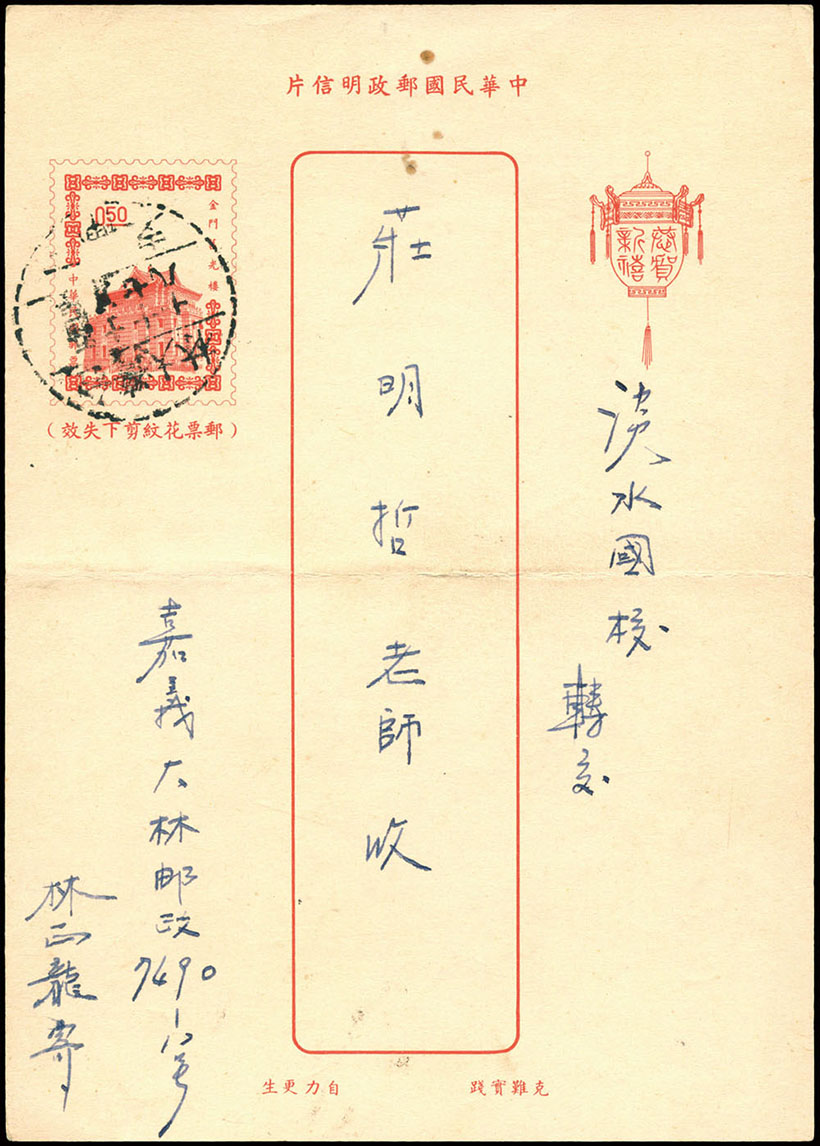 中華民國郵政明信片
恭賀
新禧
淡水國校
轉交
莊明哲老師收
0.50
金門莒光樓
中華
(郵票花紋剪下失效)
嘉義大林邮政7490-12号
林正龍寄
克難實踐
自力更生